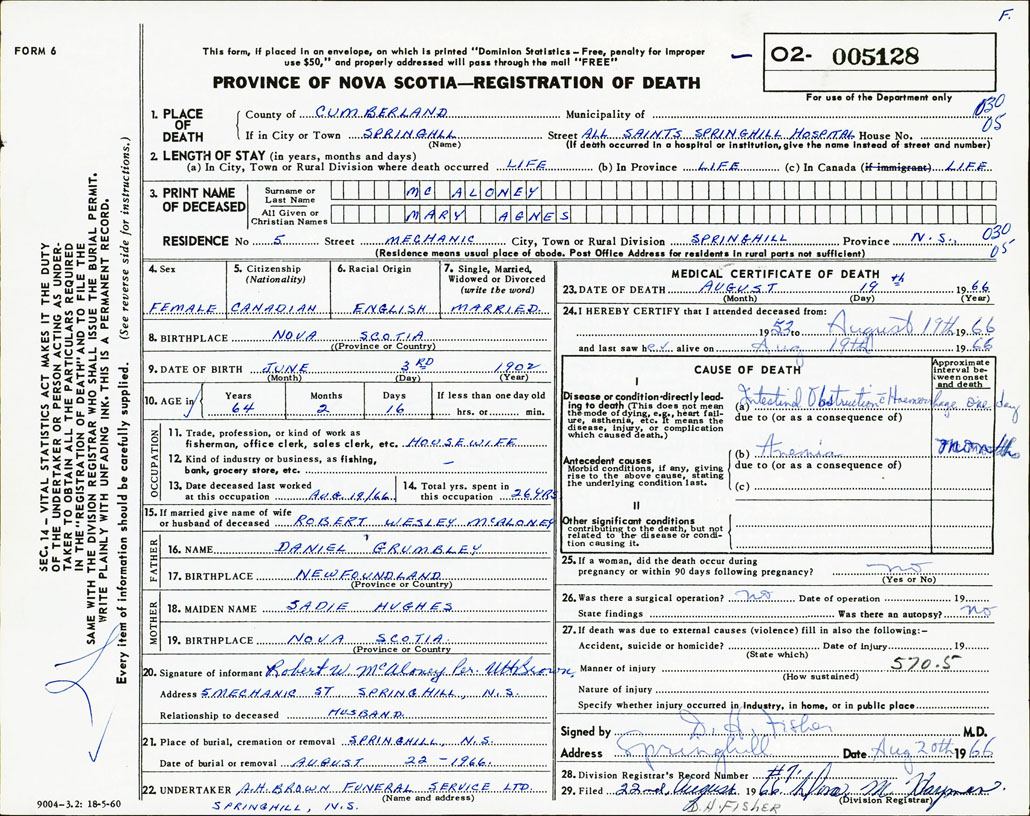 F.
FORM 6
This form, if placed in an envelope, on which is printed "Dominion Statistics – Free, penalty for improper
use $50," and properly addressed will pass through the mail "FREE"
PROVINCE OF NOVA SCOTIA—REGISTRATION OF DEATH
02- 005128
For use of the Department only
1. PLACE OF DEATH
County of CUMBERLAND Municipality of 030
If in City or Town SPRINGHLL Street ALL SAINTS SPRINGHILL HOSPITAL House No. 05
(Name) (If death occurred in a hospital or institution, give the name instead of street and number)
2. LENGTH OF STAY (in years, months and days)
(a) In City, Town or Rural Division where death occurred LIFE (b) In Province LIFE (c) In Canada (if immigrant) LIFE
3. PRINT NAME OF DECEASED
Surname or Last Name MC ALONEY
All Given or Christian Names MARY AGNES
RESIDENCE No 5 Street MECHANIC City, Town or Rural Division SPRINGHILL Province N.S., 030
(Residence means usual place of abode. Post Office Address for residents in rural parts not sufficient) 05
4. Sex FEMALE
5. Citizenship (Nationality) CANADIAN
6. Racial Origin ENGLISH
7. Single, Married, Widowed or Divorced (write the word) MARRIED.
8. BIRTHPLACE NOVA SCOTIA
(Province or Country)
9. DATE OF BIRTH JUNE 3RD 1902
(Month) (Day) (Year)
10. AGE in Years Months Days If less than one day old
64 2 16 hrs. or min.
OCCUPATION
11. Trade, profession, or kind of work as
fisherman, office clerk, sales clerk, etc. HOUSEWIFE
12. Kind of industry or business, as fishing,
bank, grocery store, etc. –
13. Date deceased last worked
at this occupation AUG 19/66
14. Total yrs. spent in
this occupation 26YRS
15. If married give name of wife
or husband of deceased ROBERT WESLEY MCALONEY
FATHER
16. NAME DANIEL GRUMBLEY
17. BIRTHPLACE NEWFOUNDLAND
(Province or Country)
MOTHER
18. MAIDEN NAME SADIE HUGHES
19. BIRTHPLACE NOVA SCOTIA
(Province or Country)
20. Signature of informant Robert W. McAloney Per. WHBrown,
Address 5 MECHANIC ST SPRINGHILL, N.S.
Relationship to deceased HUSBAND.
21. Place of burial, cremation or removal SPRINGHILL, N.S.
Date of burial or removal AUGUST 22 – 1966.
22. UNDERTAKER A.H. BROWN FUNERAL SERVICE LTD.
(Name and address)
SPRINGHILL, N.S.
MEDICAL CERTIFICATE OF DEATH
23. DATE OF DEATH AUGUST 19th 1966
(Month) (Day) (Year)
24. I HEREBY CERTIFY that I attended deceased from:
1953 to August 19th 1966
and last saw her alive on Aug 19th 1966
CAUSE OF DEATH
Approximate interval between onset and death
I
Disease or condition directly leading to death (This does not mean the mode of dying, e.g., heart failure, asthenia, etc. It means the disease, injury, or complication which caused death.)
(a) Intestinal Obstruction c Haemorrhage one day
due to (or as a consequence of)
Antecedent causes
Morbid conditions, if any, giving rise to the above cause, stating the underlying condition last.
(b) Anemia months
due to (or as a consequence of)
(c)
II
Other significant conditions
contributing to the death, but not related to the disease or condition causing it.
25. If a woman, did the death occur during
pregnancy or within 90 days following pregnancy? no
(Yes or No)
26. Was there a surgical operation? no Date of operation 19
State findings Was there an autopsy? no
27. If death was due to external causes (violence) fill in also the following:–
Accident, suicide or homicide? Date of injury 19
(State which) 570.5
Manner of injury
(How sustained)
Nature of injury
Specify whether injury occurred in industry, in home, or in public place
Signed by D. H. Fisher M.D.
Address Springhill Date Aug 20th 1966
28. Division Registrar's Record Number #7
29. Filed 22nd, August 1966 M. Hayman.
(Division Registrar)
D.H. FISHER
SEC. 14 – VITAL STATISTICS ACT MAKES IT THE DUTY
OF THE UNDERTAKER OR PERSON ACTING AS UNDER-
TAKER TO OBTAIN ALL THE PARTICULARS REQUIRED
IN THE "REGISTRATION OF DEATH" AND TO FILE THE
SAME WITH THE DIVISION REGISTRAR WHO SHALL ISSUE THE BURIAL PERMIT.
WRITE PLAINLY WITH UNFADING INK. THIS IS A PERMANENT RECORD.
Every item of information should be carefully supplied. (See reverse side for instructions.)
9004–3.2: 18-5-60